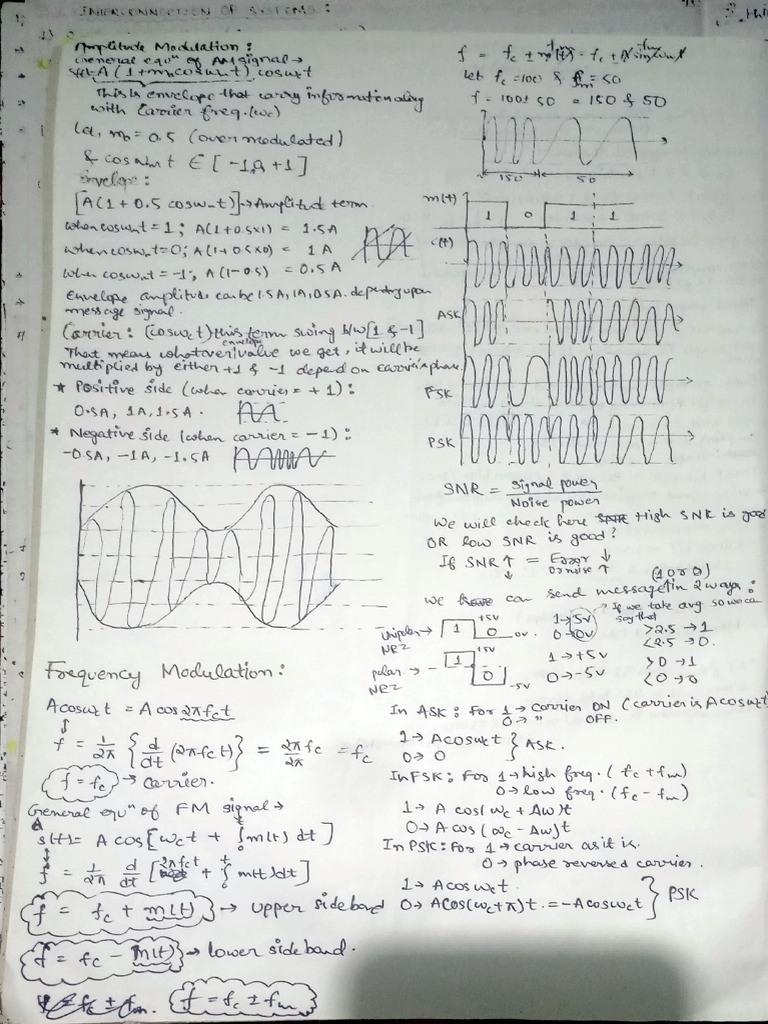 INTERCONNECTION OF SYSTEMS:
Amplitude Modulation:
General equⁿ of AM signal →
s(t)=A (1+mₐcosωₘt) cosωct
This is envelope that carry information along
with Carrier freq. (ωc)
Let, mₐ = 0.5 (over modulated)
& cosωₘt ∈ [-1,0,+1]
Envelope:
[A(1+0.5 cosωₘt)]→Amplitud term
when cosωₘt = 1; A(1+0.5×1) = 1.5A
when cosωₘt=0; A(1+0.5×0) = 1A
when cosωₘt = -1; A(1-0.5) = 0.5A
Envelope amplitude can be 1.5A, 1A, 0.5A. depending upon
message signal.
Carrier: (cosωct) this term swing b/w [1 & -1]
That means whatever envelope value we get, it will be
multiplied by either +1 & -1 depend on carrier phase.
* Positive side (when carrier = +1):
0.5A, 1A, 1.5A.
* Negative side (when carrier = -1):
-0.5A, -1A, -1.5A
Frequency Modulation:
Acosωct = A cos 2πfct
f = 1/2π {d/dt (2πfct)} = 2πfc/2π = fc
f = fc → carrier.
General equⁿ of FM signal →
s(t)= A cos[ωct + ∫₀ᵗ m(t) dt]
f = 1/2π d/dt [2πfct + ∫₀ᵗ m(t) dt]
f = fc + m(t) → upper sideband
f = fc - m(t) → lower sideband.
f = fc ± fm
f = fc ± m(t) = fc ±
let fc = 100 & fm = 50
f = 100 ± 50 = 150 & 50
150 50
m(t) 1 0 1 1
c(t)
ASK
FSK
PSK
SNR = Signal power / Noise power
We will check here High SNR is good
OR low SNR is good?
If SNR ↑ = Error ↓
↓ Or noise ↑
(1 or 0)
we can send message in 2 ways:
If we take avg so we can
say that
Unipolar → 1 0 +5V 0V. 1→5V >2.5 → 1
NRZ 0→0V <2.5 → 0.
polar → 1 0 +5V -5V 1→+5V >0 → 1
NRZ 0→-5V <0 → 0
In ASK: For 1→ carrier ON (carrier is Acosωct)
0→ " OFF.
1→ Acosωct } ASK.
0→ 0
In FSK: For 1→high freq. (fc+fm)
0→low freq. (fc-fm)
1→ A cos(ωc + Δω)t
0→ A cos(ωc - Δω)t
In PSK: For 1→ carrier as it is.
0→ phase reversed carrier.
1→ Acosωct.
0→ Acos(ωc+π)t = -Acosωct } PSK